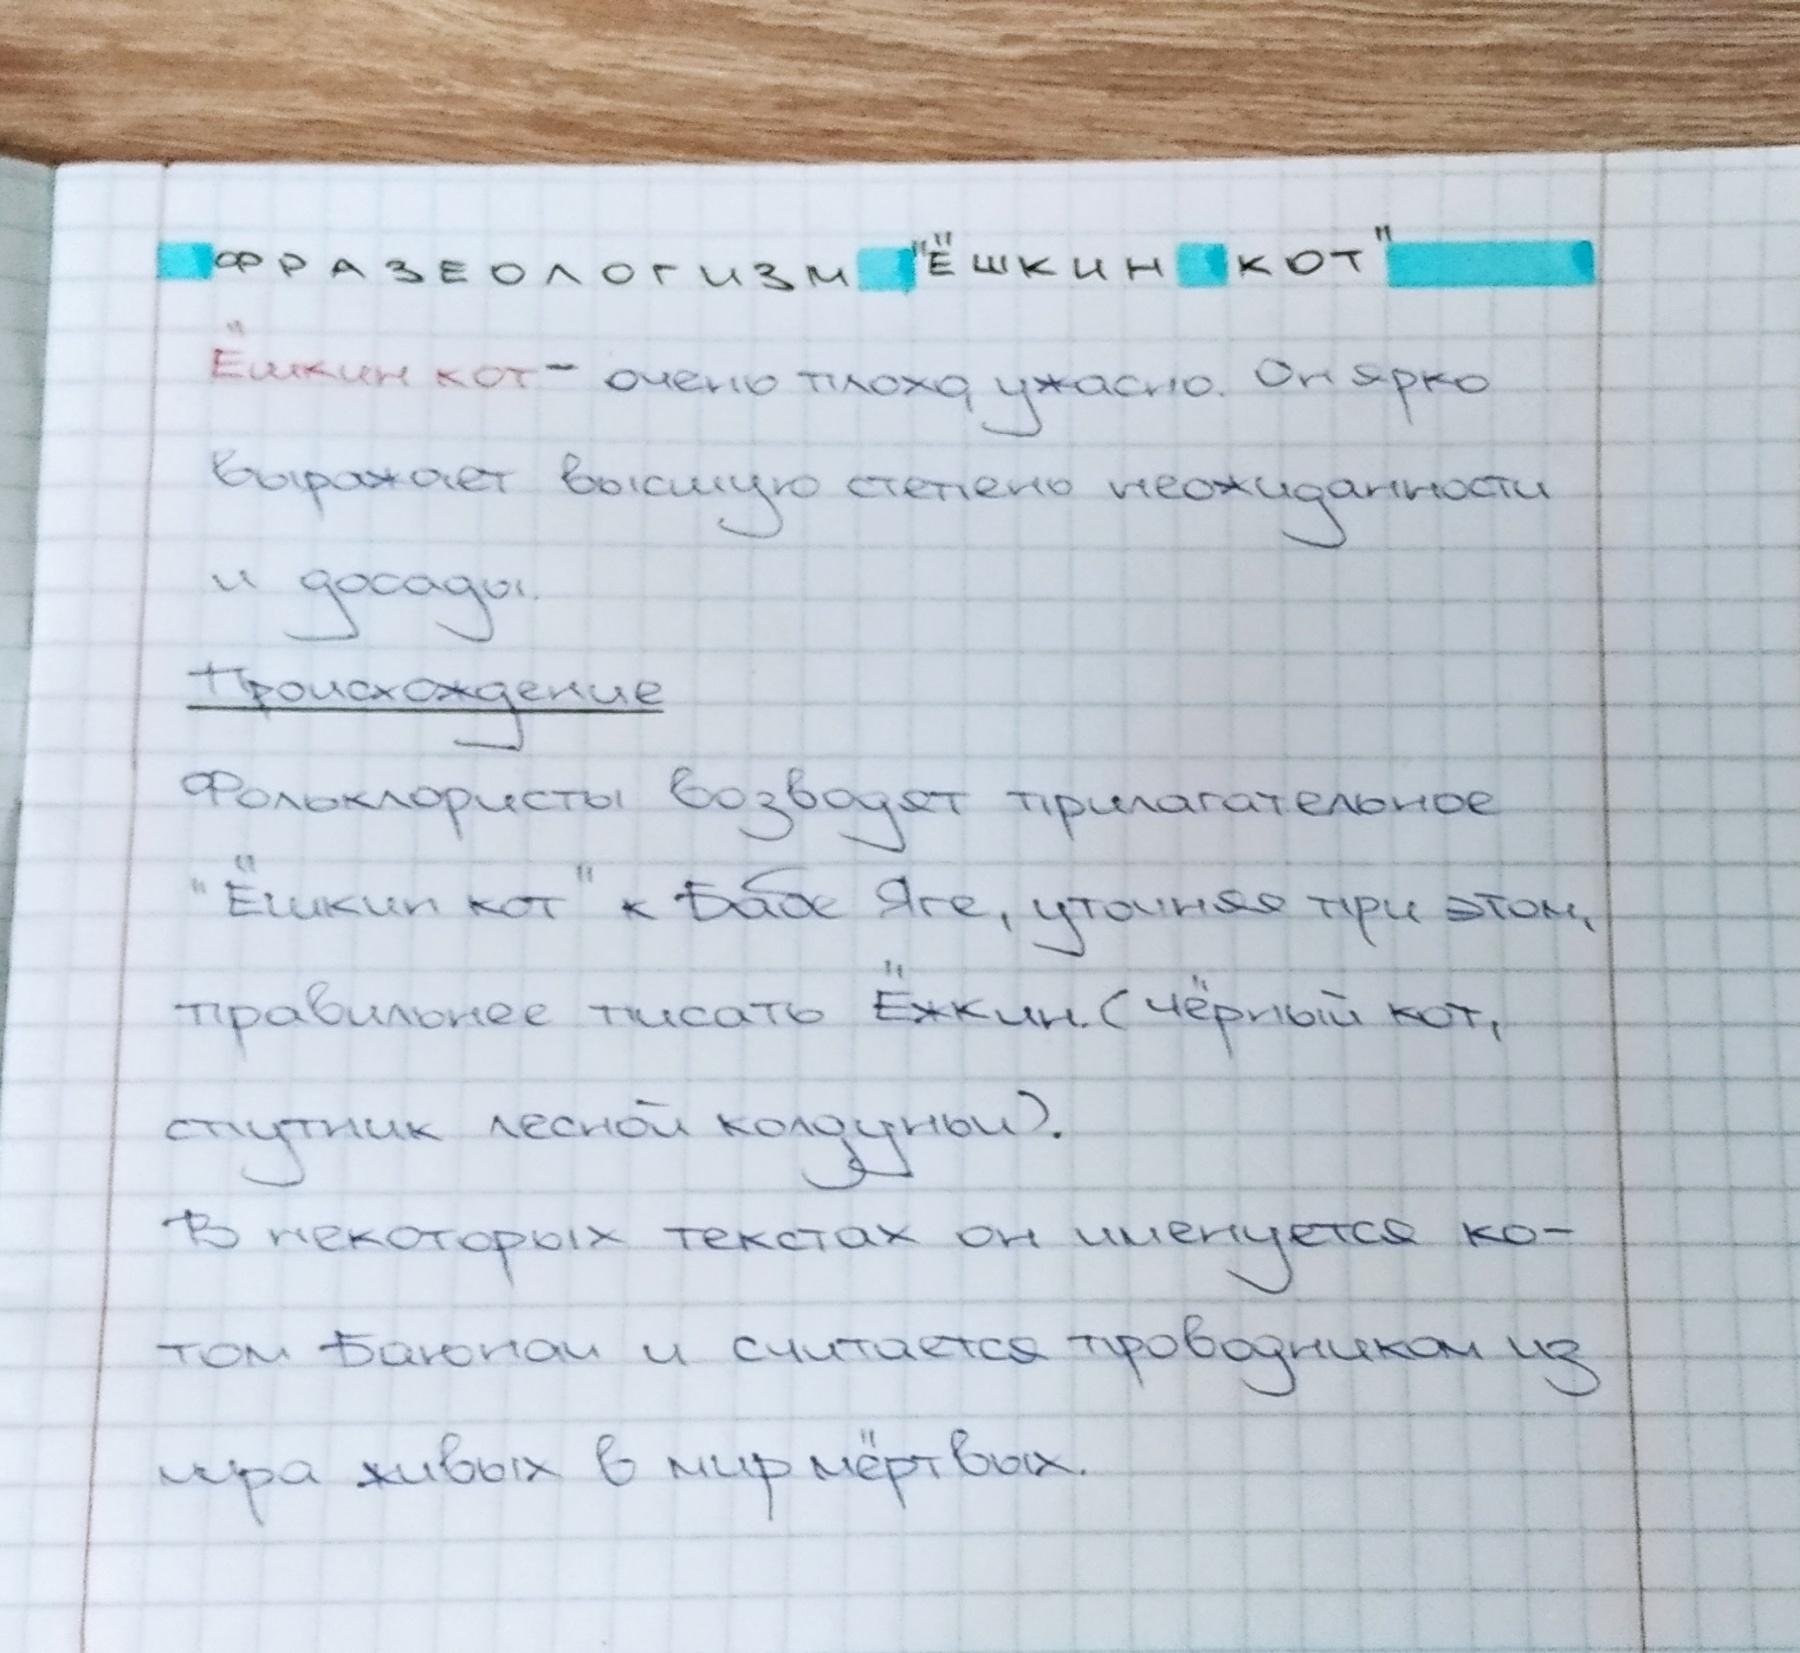 ФРАЗЕОЛОГИЗМ "ЁШКИН КОТ"
Ёшкин кот - очень плохо, ужасно. Он ярко
выражает высшую степень неожиданности
и досады.
Происхождение
Фольклористы возводят прилагательное
"Ёшкин кот" к Бабе Яге, уточняя при этом,
правильнее писать Ёжкин. (чёрный кот,
спутник лесной колдуньи).
В некоторых текстах он именуется ко-
том Баюном и считается проводником из
мира живых в мир мёртвых.